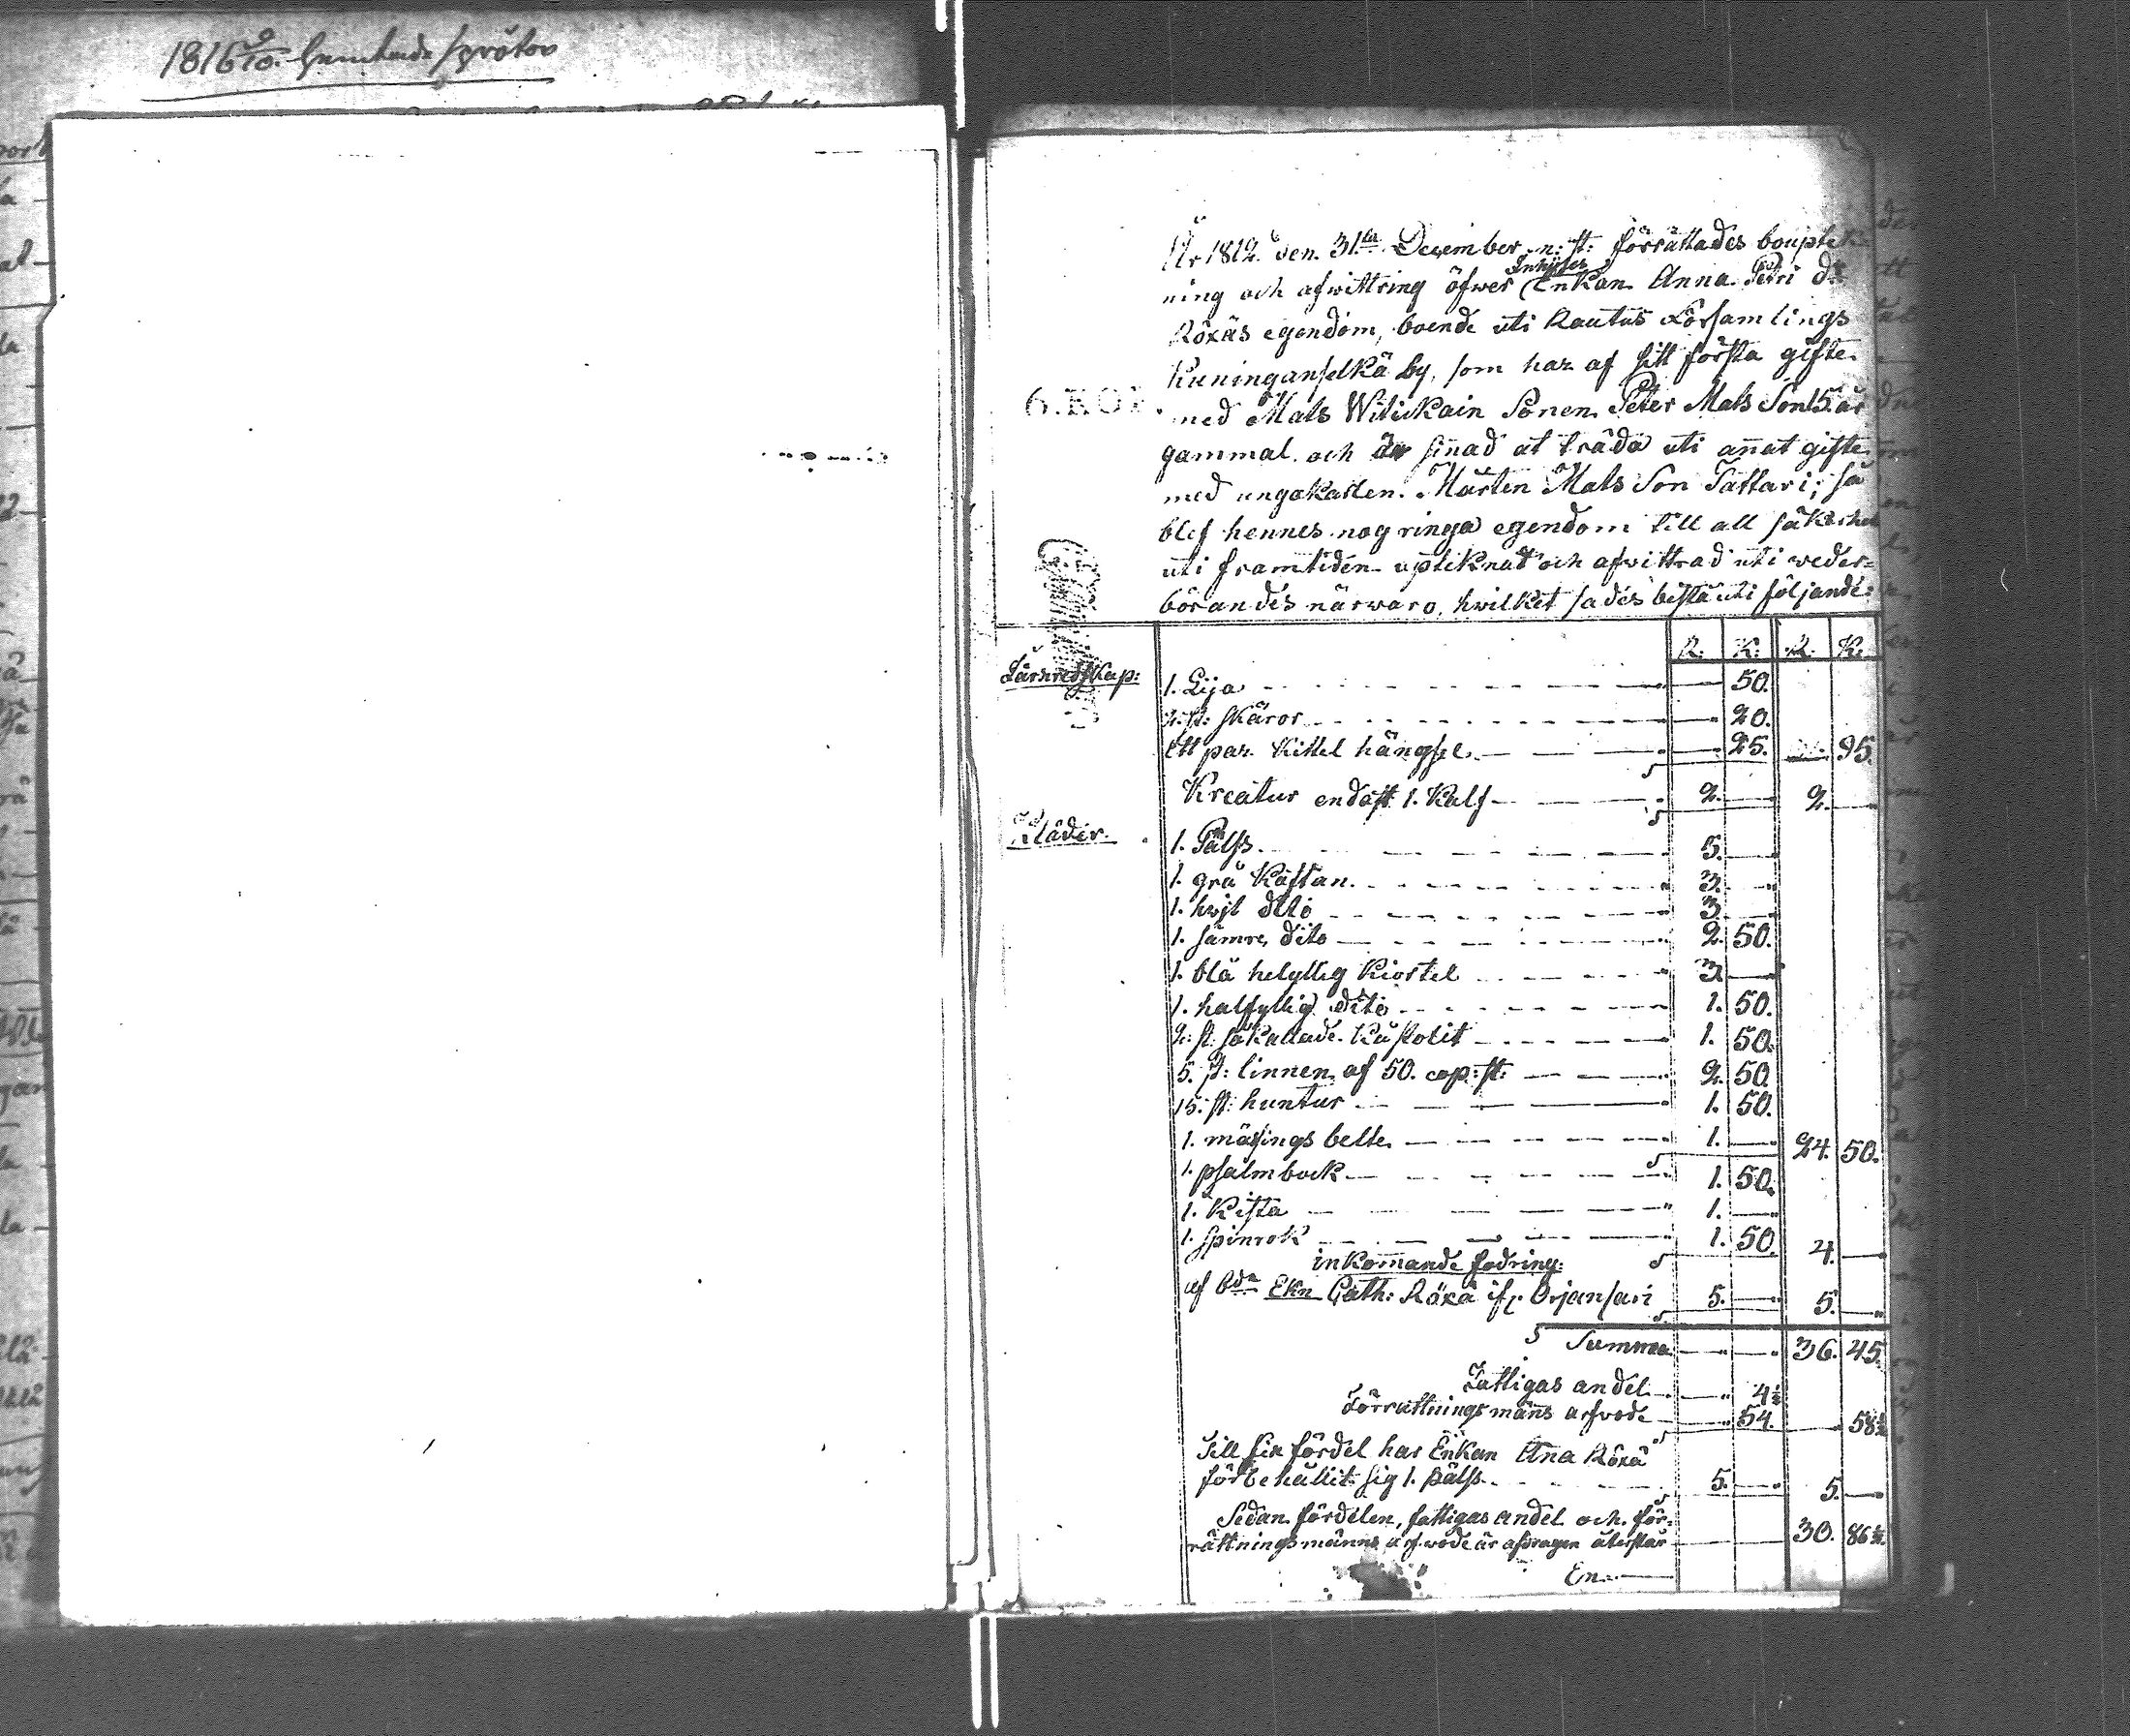 År 1812 den 31.ta December n: st: förrättades bouptek-
ning och afwittring öfwer Inhyses Enkan Anna Petri dr
Röxäs egendom, boende uti Rautus Församlings
Kuninganselkä by, som har af sitt första gifte
6.KOP.
med Mats Witikain Sonen Peter Mats Son 15. år
gammal och är sinad at träda uti annat gifte
med ungakarlen Mårten Mats Son Tattari; så
blef hennes nog ringa egendom till all säkerhet
uti framtiden upteknat och afwittrad uti weder-
börandes närwaro, hwilket sades bestå uti följande:
R. K. R. K.
1. Lija 50.
2. st: skäror 20.
Ett par Kittel hängsel 25. 95.
Kreatur endast 1. Kalf 2. 2.
Kläder.
1. Pälss 5.
1. grå Kaftan 3.
1. hwit dito 3.
1. sämre dito 2. 50.
1. blå helyllig Kiortel 3
1. halfyllig dito 1. 50.
2: st: såkallade 1. 50.
5. st: linnen af 50. cop: st: 2. 50
15. st: huntur 1. 50.
1. mäsings belte 1. 24. 50.
1. psalmbock 1. 50.
1. Kista 1.
1. spinrok 1. 50 4.
inkommande fodring:
af Bdn Ekn Cath: Röxä ifr. Orjansari 5. 5.
Summa 36. 45.
Fattigas andel 4½
Förrättningsmäns arfvode 54. 58½
Till sin fördel har Enkan Ana Röxä
förbehållit sig 1. pälss 5. 5.
Sedan fördelen, fattigas andel och för-
rättningsmänns arfvode är afdragen återstår 30. 86½.
En